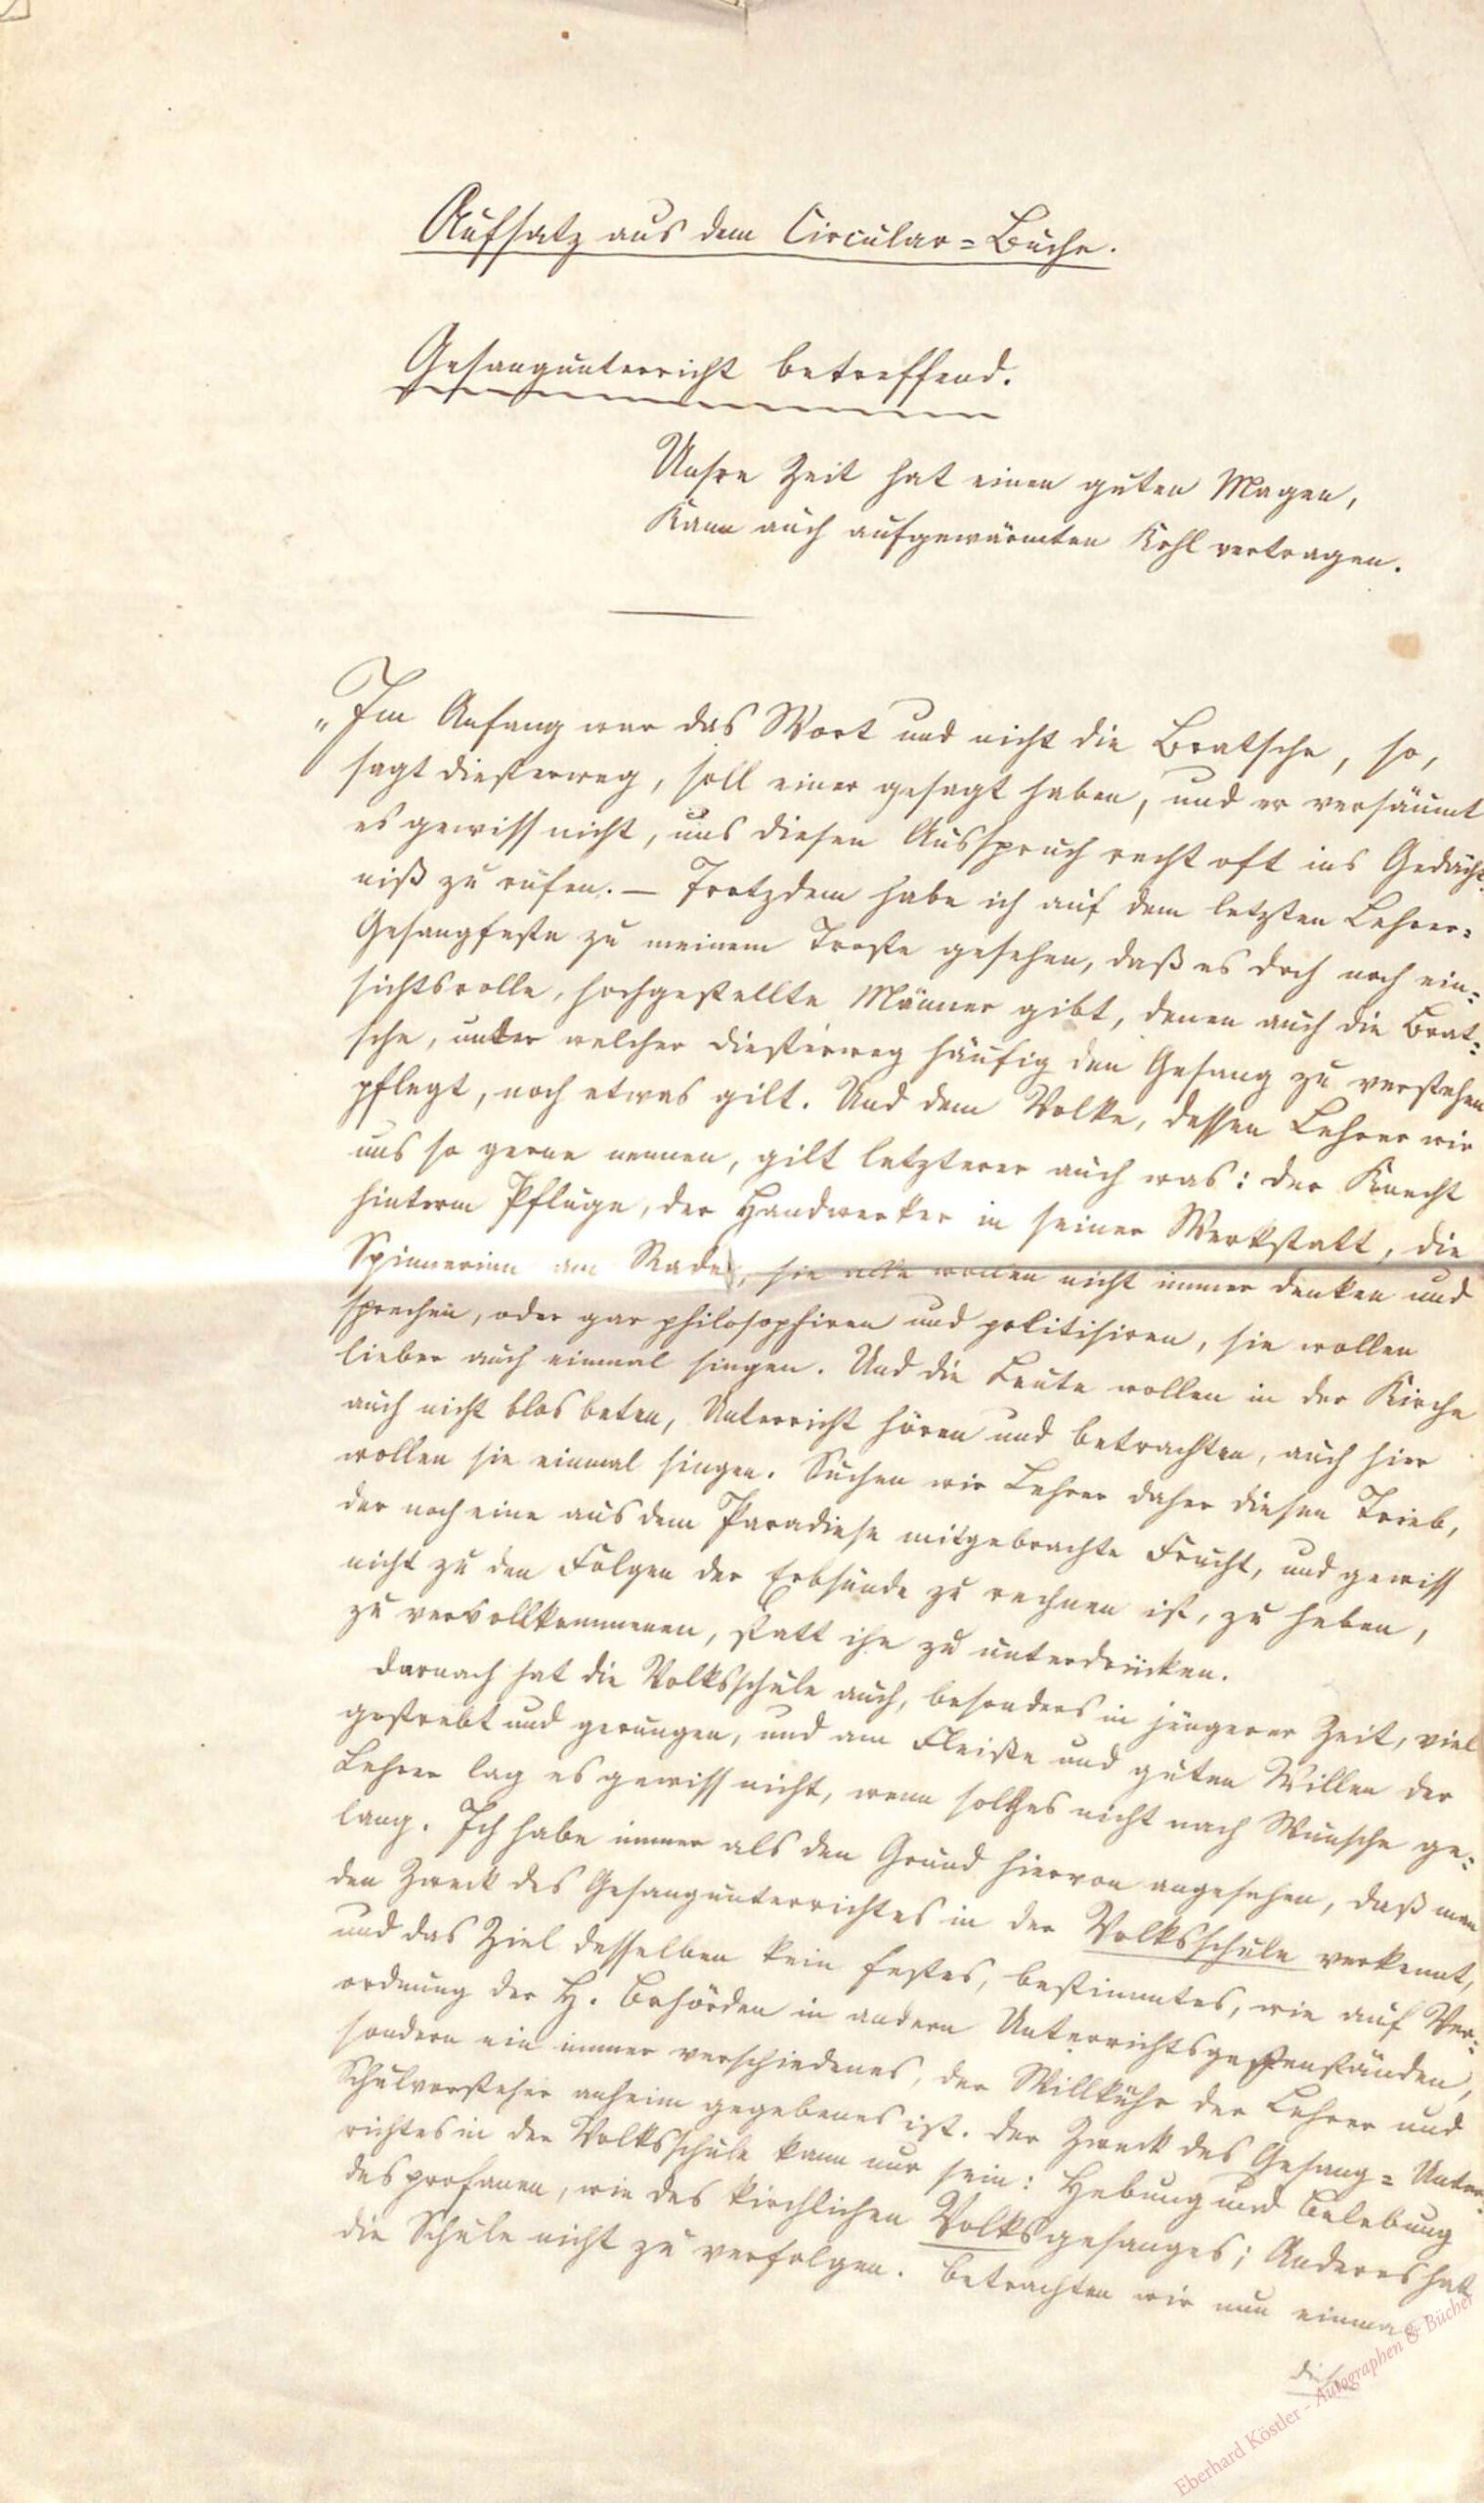 Aufsatz aus dem Circular=Buche.
Gesangunterricht betreffend.
Unsre Zeit hat einen guten Magen,
Kann auch aufgewärmten Kohl vertragen.
„Im Anfang war das Wort und nicht die Bratsche, so,
sagt Diesterweg, soll einer gesagt haben, und er versäumt
es gewiss nicht, uns diesen Ausspruch recht oft ins Gedächt=
niß zu rufen. — Trotzdem habe ich auf dem letzten Lehrer=
Gesangfeste zu meinem Troste gesehen, daß es doch noch ein=
sichtsvolle, hochgestellte Männer gibt, denen auch die Brat=
sche, unter welcher Diesterweg häufig den Gesang zu verstehen
pflegt, noch etwas gilt. Und dem Volke, dessen Lehrer wir
uns so gerne nennen, gilt letzterer auch was: der Knecht
hinterm Pfluge, der Handwerker in seiner Werkstatt, die
Spinnerinn am Rade, sie alle wollen nicht immer denken und
sprechen, oder gar philosophiren und politisiren, sie wollen
lieber auch einmal singen. Und die Leute wollen in der Kirche
auch nicht blos beten, Unterricht hören und betrachten, auch hier
wollen sie einmal singen. Suchen wir Lehrer daher diesen Trieb,
der noch eine aus dem Paradiese mitgebrachte Frucht, und gewiss
nicht zu den Folgen der Erbsünde zu rechnen ist, zu heben,
zu vervollkommenen, statt ihn zu unterdrücken.
Darnach hat die Volksschule auch, besonders in jüngerer Zeit, viel
gestrebt und gerungen, und am Fleiße und guten Willen der
Lehrer lag es gewiss nicht, wenn solches nicht nach Wunsche ge=
lang. Ich habe immer als den Grund hiervon angesehen, daß man
den Zweck des Gesangunterrichtes in der Volksschule verkennt,
und das Ziel desselben kein festes, bestimmtes, wie auf Ver=
ordnung der H. Behörden in andern Unterrichtsgegenständen,
sondern ein immer verschiedenes, der Willkühr der Lehrer und
Schulvorsteher anheim gegebenes ist. Der Zweck des Gesang=Unter=
richtes in der Volksschule kann nur sein: Hebung und Belebung
des profanen, wie des kirchlichen Volksgesanges; Anderes hat
die Schule nicht zu verfolgen. Betrachten wir nun einmal
Eberhard Köstler - Autographen & Bücher